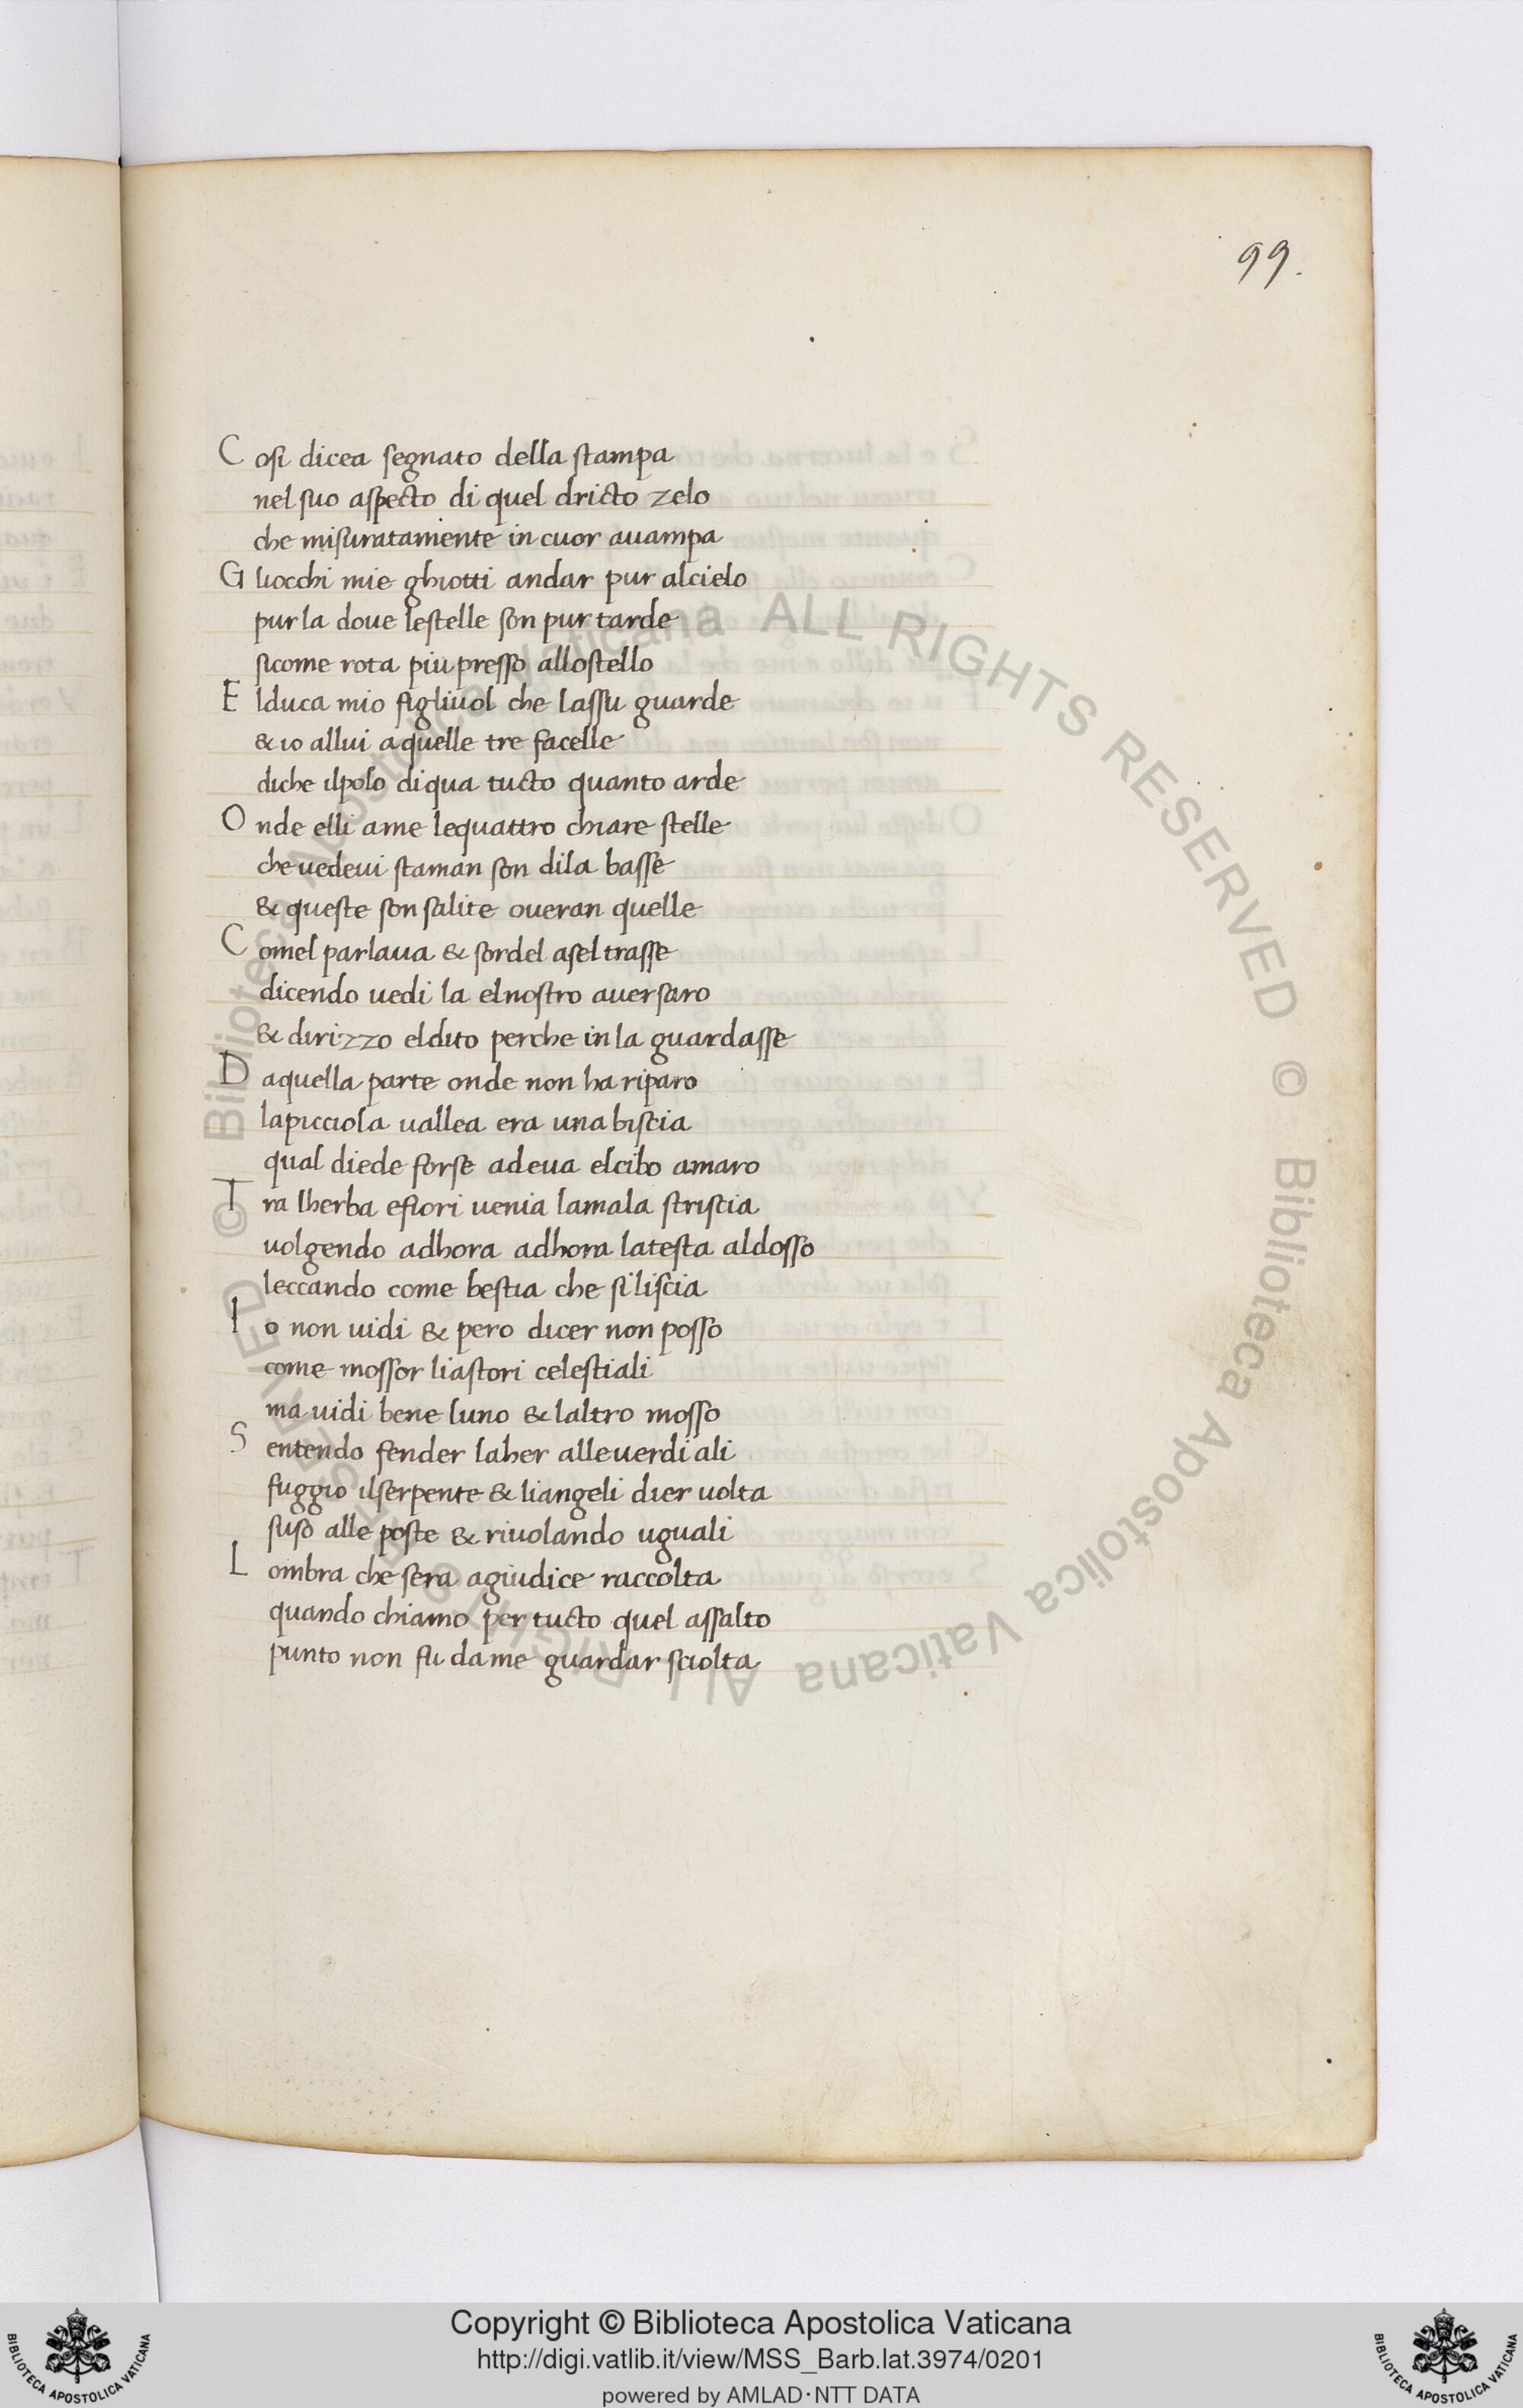 99.
Cosi dicea segnato della stampa
nel suo aspecto di quel dricto zelo
che misuratamente in cuor auampa
Gliocchi mie ghiotti andar pur alcielo
pur la doue lestelle son pur tarde
sicome rota piu presso allostello
Elduca mio figliuol che lassu guarde
& io allui aquelle tre facelle
diche ilpolo diqua tucto quanto arde
Onde elli ame lequattro chiare stelle
che uedeui staman son dila basse
& queste son salite oueran quelle
Comel parlaua & sordel asel trasse
dicendo uedi la elnostro auersaro
& dirizzo eldito perche in la guardasse
Daquella parte onde non ha riparo
lapicciola uallea era una biscia
qual diede forse adeua elcibo amaro
Tra lherba efiori uenia lamala striscia
uolgendo adhora adhora latesta aldosso
leccando come bestia che siliscia
Io non uidi & pero dicer non posso
come mossor liastori celestiali
ma uidi bene luno & laltro mosso
Sentendo fender laher alleuerdi ali
fuggio ilserpente & liangeli dier uolta
suso alle poste & riuolando uguali
Lombra che sera agiudice raccolta
quando chiamo per tucto quel assalto
punto non fu dame guardar sciolta
© Biblioteca Apostolica Vaticana ALL RIGHTS RESERVED © Biblioteca Apostolica Vaticana ALL RIGHTS RESERVED
Copyright © Biblioteca Apostolica Vaticana
http://digi.vatlib.it/view/MSS_Barb.lat.3974/0201
powered by AMLAD·NTT DATA
BIBLIOTECA APOSTOLICA VATICANA
BIBLIOTECA APOSTOLICA VATICANA